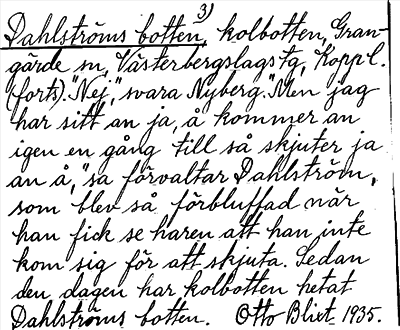 3)
Dahlströms botten, kolbotten, Gran-
gärde sn, Västerbergslags tg, Koppl.
(forts). "Nej", svara Nyberg. "Men jag
har sitt an ja, å kommer an
igen en gång till så skjuter ja
an å," sa förvaltar Dahlström,
som blev så förbluffad när
han fick se haren att han inte
kom sig för att skjuta. Sedan
den dagen har kolbotten hetat
Dahlströms botten. Otto Blixt 1935.